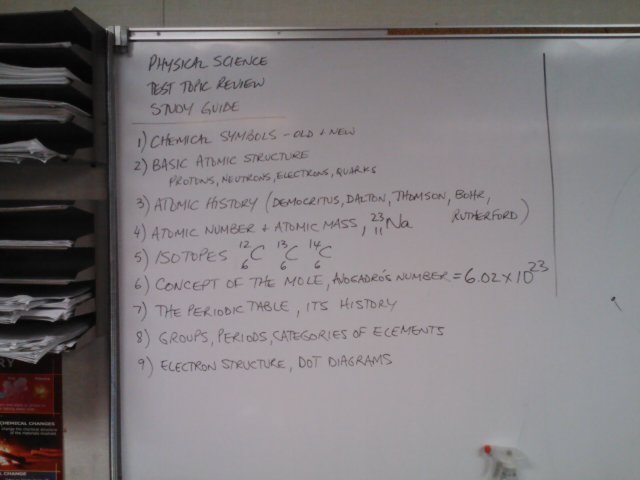 PHYSICAL SCIENCE
TEST TOPIC REVIEW
STUDY GUIDE
1) CHEMICAL SYMBOLS - OLD + NEW
2) BASIC ATOMIC STRUCTURE
PROTONS, NEUTRONS, ELECTRONS, QUARKS
3) ATOMIC HISTORY (DEMOCRITUS, DALTON, THOMSON, BOHR,
RUTHERFORD)
4) ATOMIC NUMBER + ATOMIC MASS, ²³₁₁Na
5) ISOTOPES ¹²₆C ¹³₆C ¹⁴₆C
6) CONCEPT OF THE MOLE, AVOGADRO'S NUMBER = 6.02 x 10²³
7) THE PERIODIC TABLE, ITS HISTORY
8) GROUPS, PERIODS, CATEGORIES OF ELEMENTS
9) ELECTRON STRUCTURE, DOT DIAGRAMS
RY
CHEMICAL CHANGES
L CHANGE